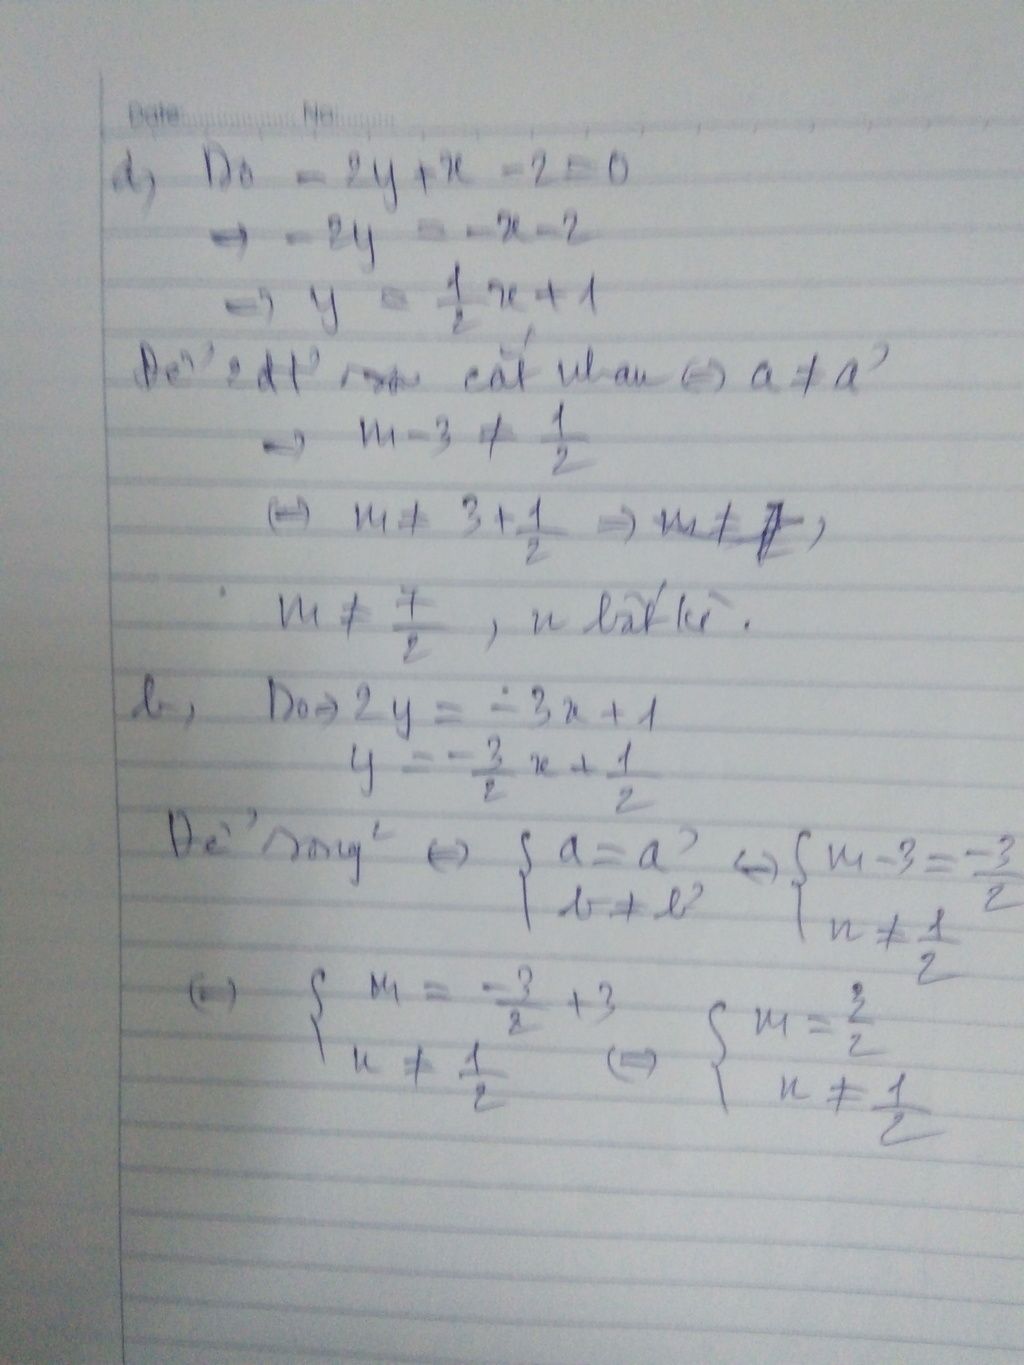 Date No
d, Do - 2y + x - 2 = 0
→ - 2y = - x - 2
→ y = 1/2 x + 1
Để 2 đt cắt nhau ⇔ a ≠ a'
→ m - 3 ≠ 1/2
⇔ m ≠ 3 + 1/2 ⇒
m ≠ 7/2 , n bất kì .
b, Do → 2y = - 3x + 1
y = - 3/2 x + 1/2
Để song² ⇔ { a = a' ⇔ { m - 3 = -3/2
b ≠ b' n ≠ 1/2
⇔ { m = -3/2 + 3 ⇔ { m = 3/2
n ≠ 1/2 n ≠ 1/2